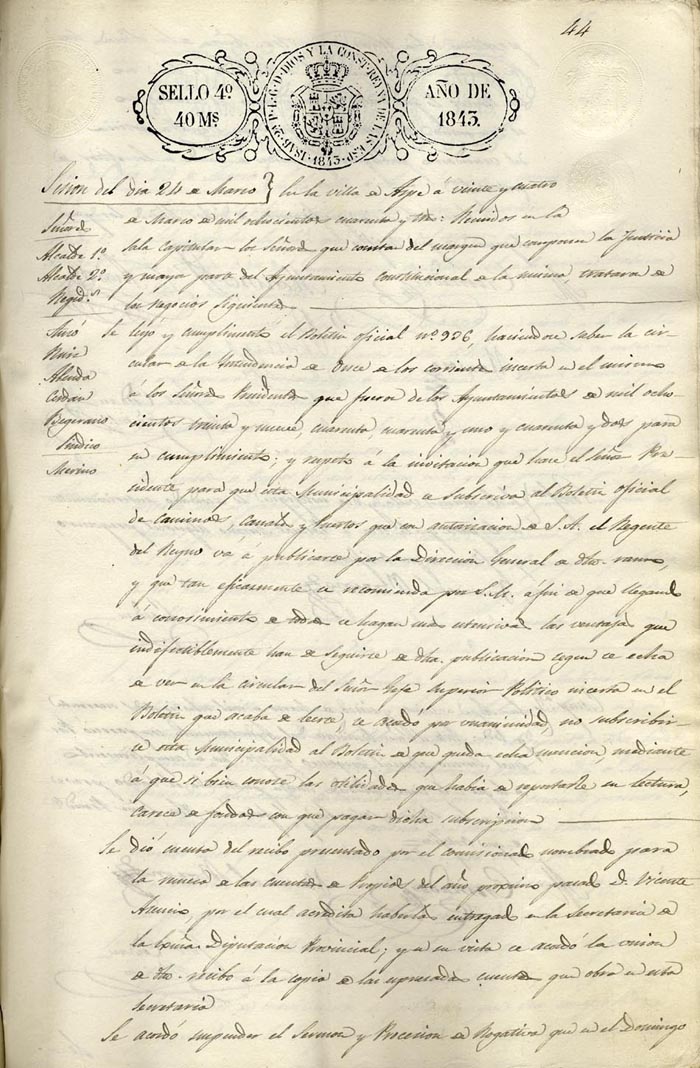 44
SELLO 4º
40 Ms
ISAB. 2ª P. L. G. D. DIOS Y LA CONST. REYNA DE LAS ESP. 1843
AÑO DE
1843.
Sesion del dia 24 de Marzo } En la villa de Aspe á veinte y cuatro
de Marzo de mil ochocientos cuarenta y tres: Reunidos en la
Señores
Sala Capitular los Señores que constan del margen que componen la Justicia
Alcalde 1º
Alcalde 2º
y mayor parte del Ayuntamiento Constitucional de la misma, trataron de
Regid.s
los negocios siguientes
Se leyó y cumplimentó el Boletin oficial nº 936, haciendose saber la cir-
Ruiz
cular de la Intendencia de Once de los corrientes incerta en el mismo
Almda
á los Señores Presidentes que fueron de los Ayuntamientos de mil ocho-
Cerdan
cientos treinta y nueve, cuarenta, cuarenta y uno y cuarenta y dos para
Sindico
su cumplimiento; y respeto á la invitacion que hace el Señor Pre-
Merino
sidente para que esta Municipalidad se subscriva al Boletin oficial
de caminos, canales y Puertos que con autorizacion de S. A. el Regente
del Reyno vá á publicarse por la Direccion General de dho. ramo,
y que tan eficazmente se recomienda por S. S. á fin de que llegand
á conocimiento de todos se hagan mas estensivas las ventajas que
indefectiblemente han de seguirse de dha. publicacion segun se echa
de ver en la circular del Señor Gefe Superior Politico incerta en el
Boletin que acaba de leerse, se acordó por unanimidad, no subscribir-
se esta Municipalidad al Boletin de que queda echa mencion, mediante
á que si bien conoce las utilidades que habia de reportarle su lectura,
carece de fondos con que pagar dicha subscripcion
Se dió cuenta del recibo presentado por el comisionado nombrado para
la de las cuentas de Propios del año proximo pasado D. Vicente
Asencio, por el cual acredita haberlas entregado en la Secretaria de
la Exma. Diputacion Provincial; y en su vista se acordó la union
de dho. recibo á la copia de las espresadas cuentas que obra en esta
secretaria
Se acordó suspender el Sermon y Procesion de Rogativa que en el Domingo